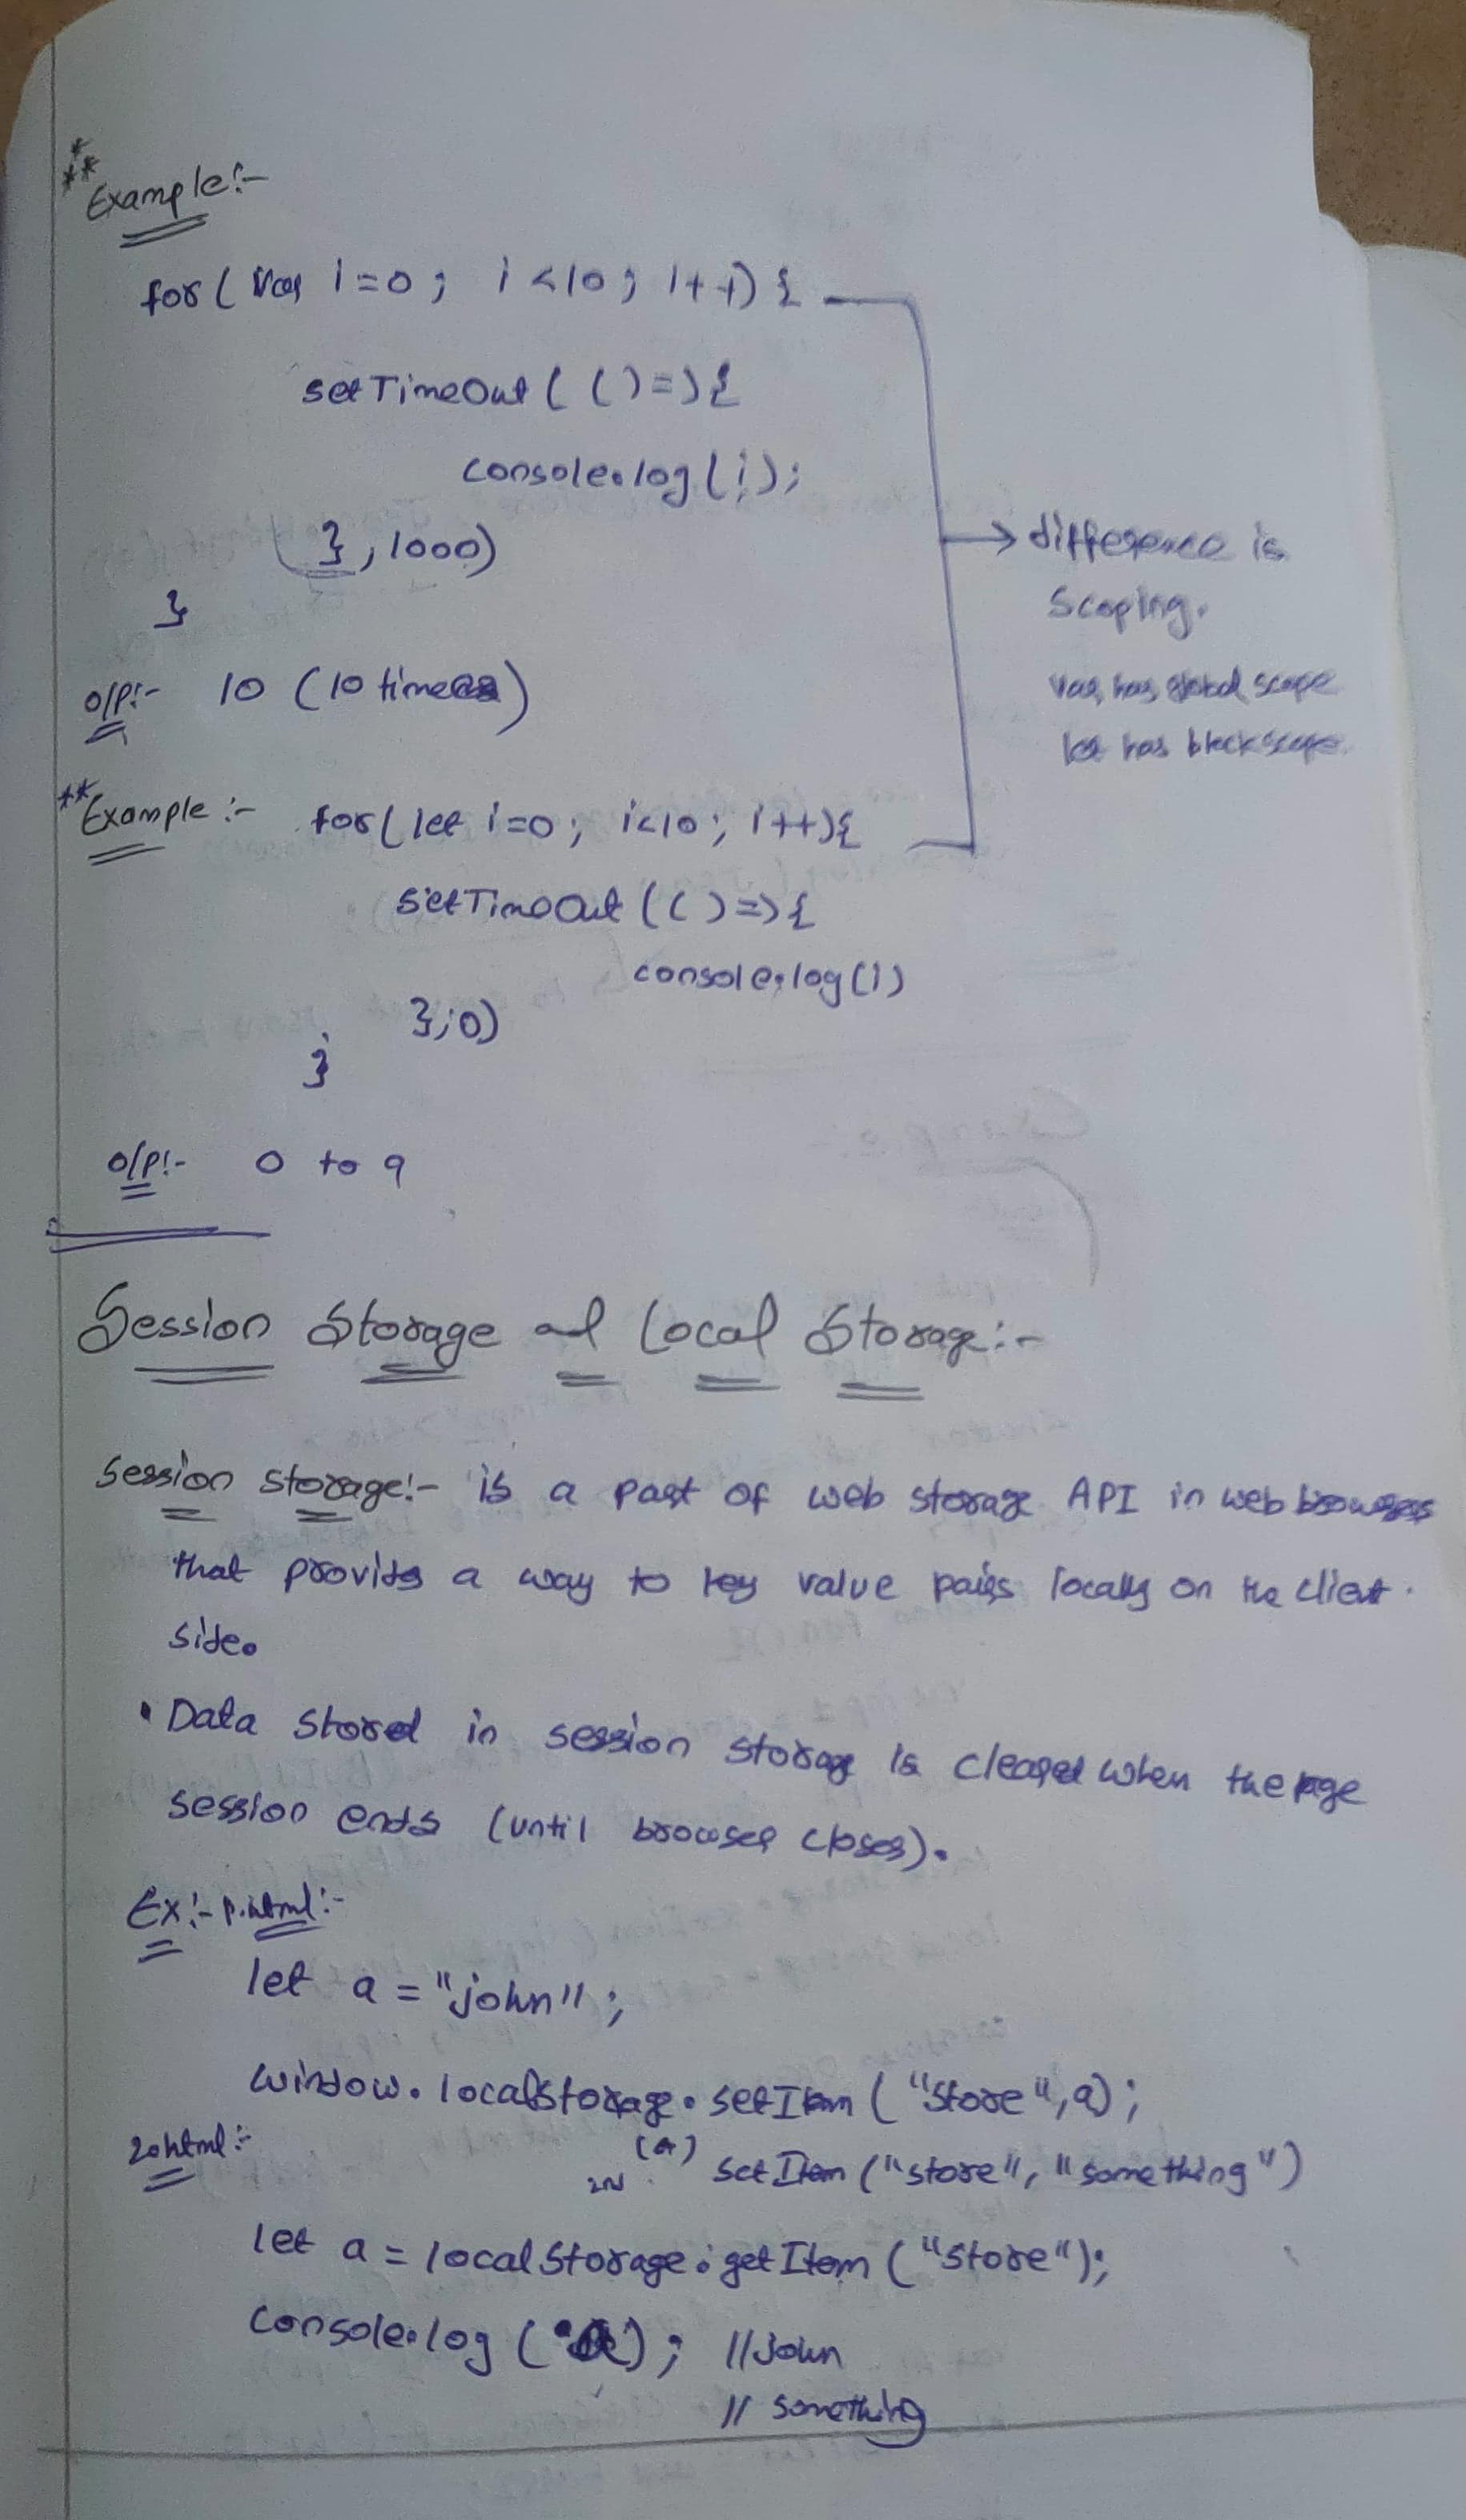 ***
Example:-
for( Var i=0; i<10; i++) {
setTimeOut( ()=>{
console.log(i);
}, 1000)
}
o/p:- 10 (10 times)
difference is
Scoping.
var has global scope
let has block scope.
** Example :- for( let i=0; i<10; i++){
SetTimeOut (()=>{
console.log(i)
},0)
}
o/p:- 0 to 9
Session Storage and Local Storage:-
Session storage:- is a part of web storage API in web browsers
that provides a way to key value pairs locally on the client
side.
• Data stored in session storage is cleared when the page
session ends (until browser closes).
Ex:- p.html:-
let a = "john";
window.localStorage.setItem ("store", a);
(or)
setItem ("store", "something")
2.html:-
let a = localStorage.getItem ("store");
console.log (a); //john
// something